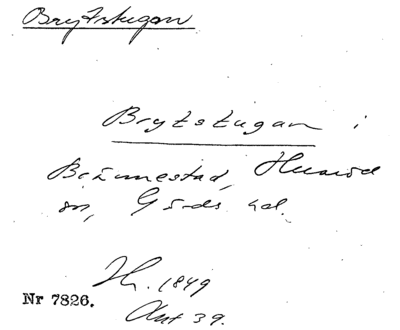 Brytstugan
Brytstugan i
Bizumestad, Husaröd
sn, Gärds hd.
Hr. 1849
Nr 7826.
Okt 39.